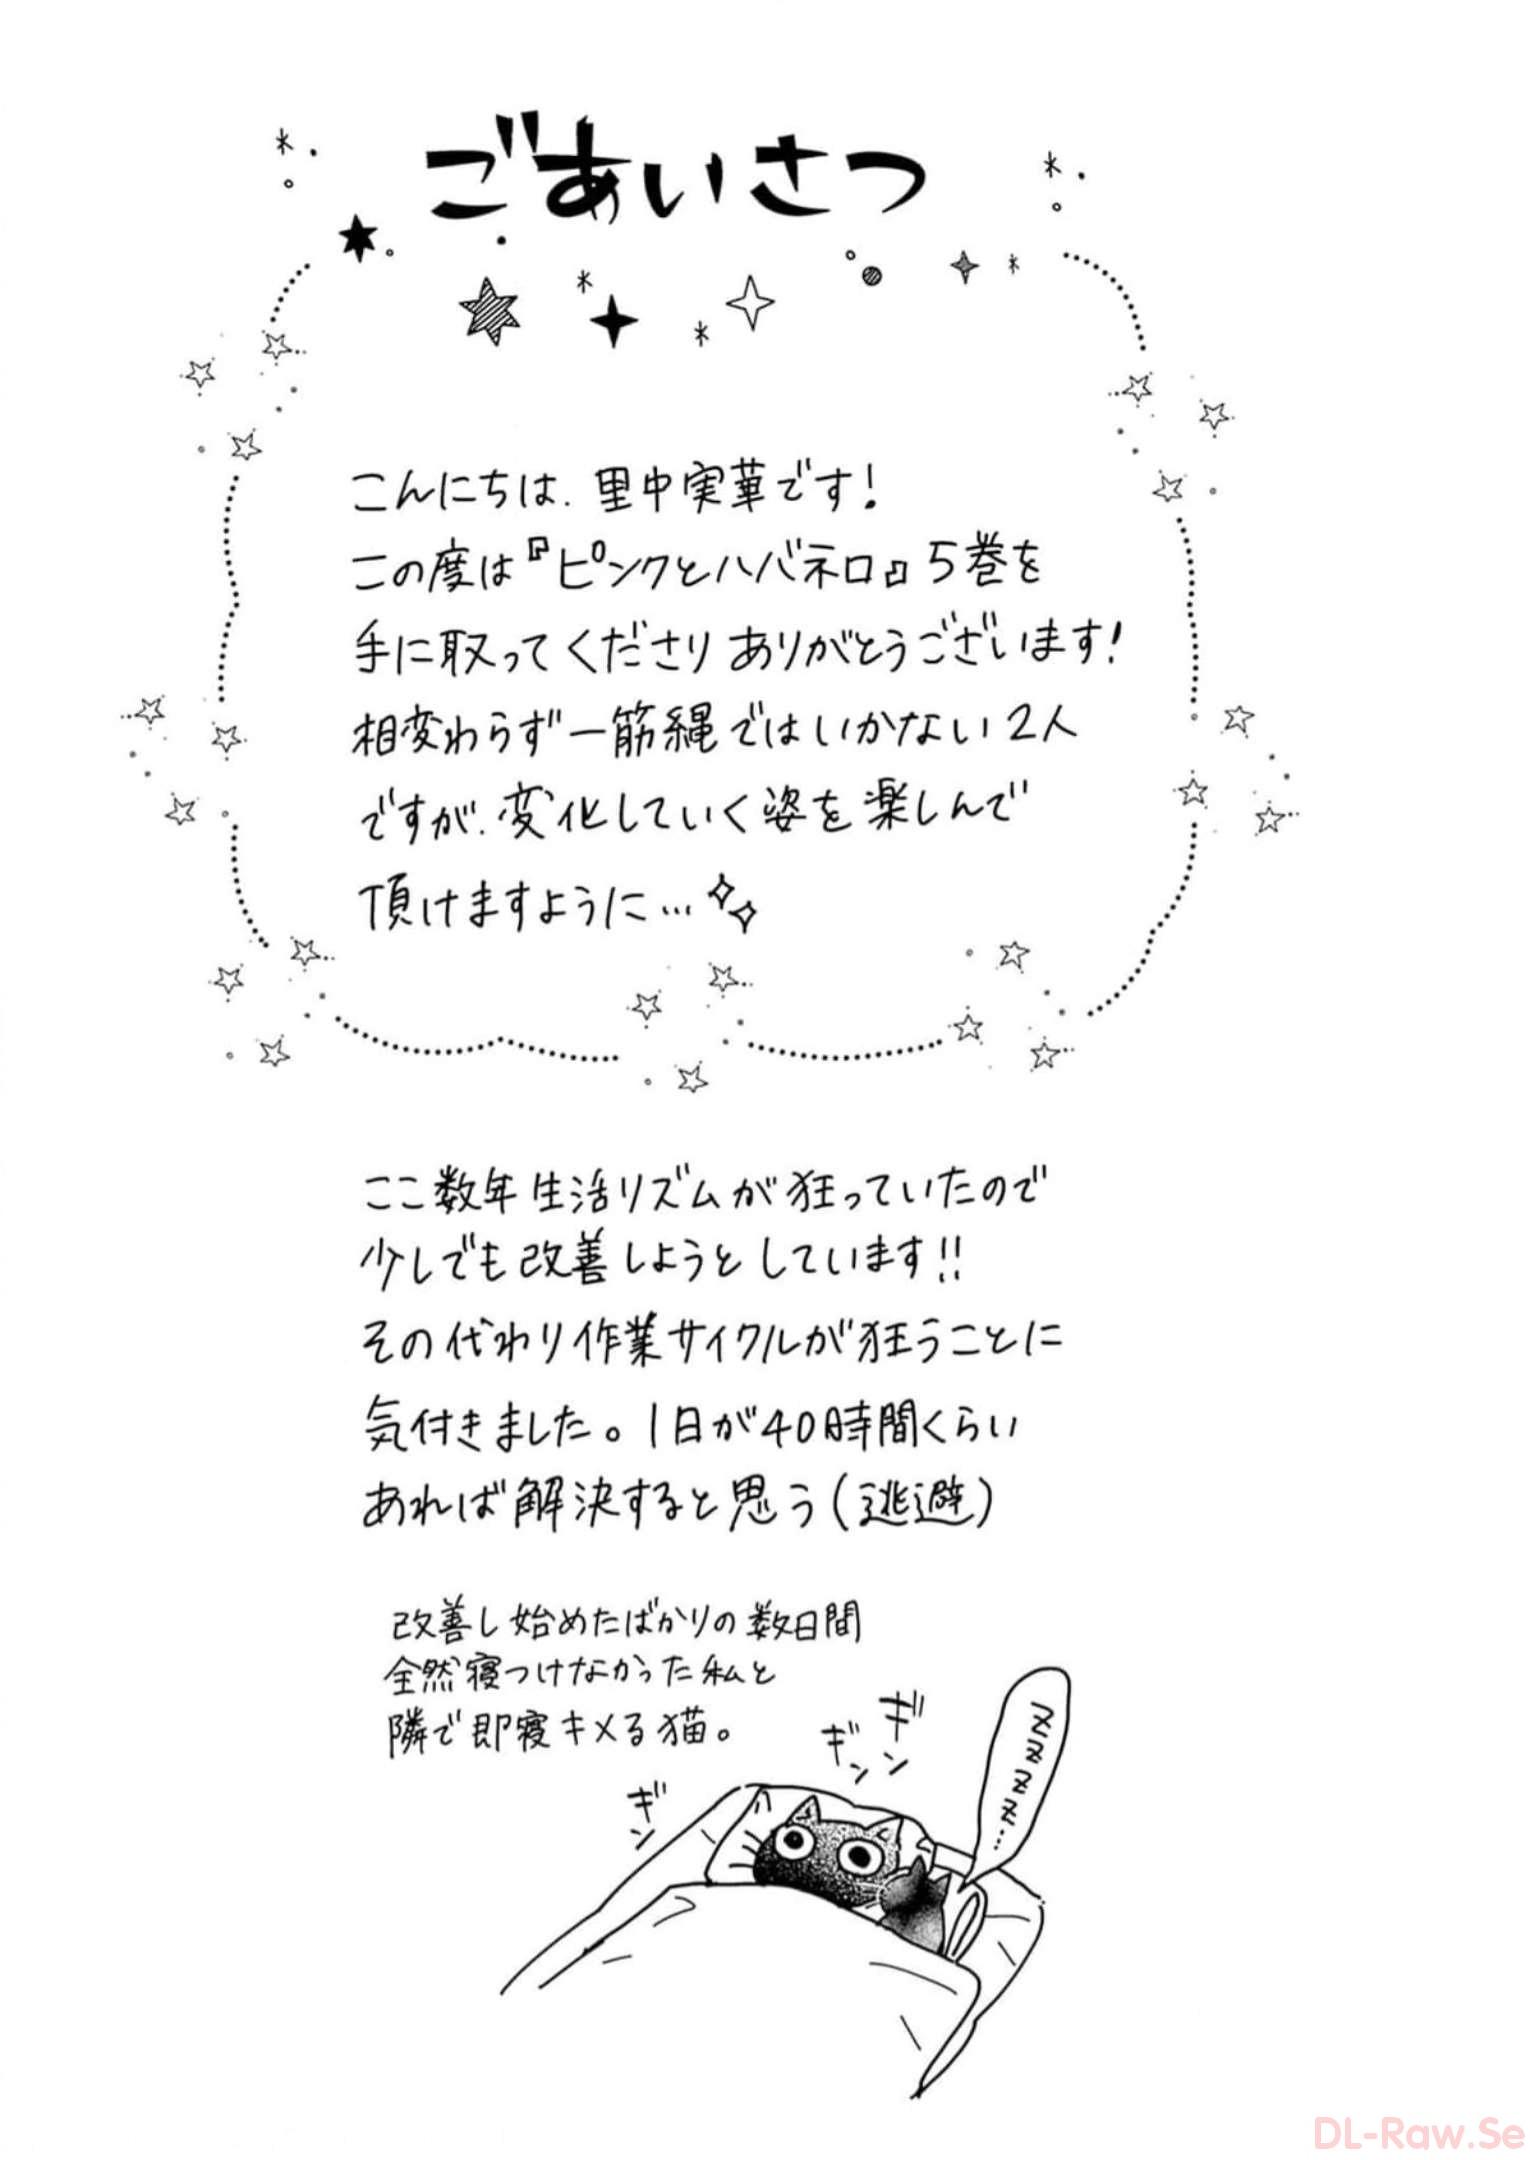 ごあいさつ
こんにちは、里中実華です!
この度は『ピンクとハバネロ』5巻を
手に取ってくださりありがとうございます!
相変わらず一筋縄ではいかない2人
ですが、変化していく姿を楽しんで
頂けますように…
ここ数年生活リズムが狂っていたので
少しでも改善しようとしています!!
その代わり作業サイクルが狂うことに
気付きました。1日が40時間くらい
あれば解決すると思う(逃避)
改善し始めたばかりの数日間
全然寝つけなかった私と
隣で即寝キメる猫。
ギン
ギン
ギン
zzzz…
DL-Raw.Se